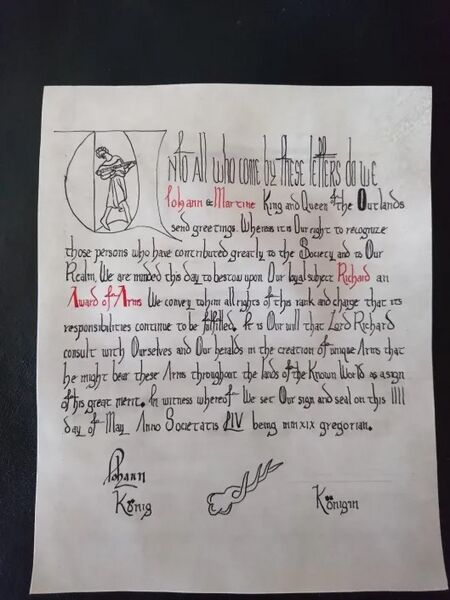 Unto All who come by these letters do we
Johann & Martine King and Queen of the Outlands
send greetings. Whereas it is Our right to recognize
those persons who have contributed greatly to the Society and to Our
Realm, We are minded this day to bestow upon Our loyal subject Richard an
Award of Arms We convey to him all rights of this rank and charge that its
responsibilities continue to be fulfilled. It is Our will that Lord Richard
consult with Ourselves and Our heralds in the creation of unique Arms that
he might bear these Arms throughout the lands of the Known World as a sign
of his great merit. In witness whereof We set Our sign and seal on this IIII
day of May Anno Societatis LIV being mmxix gregorian.
Johann
König
Königin